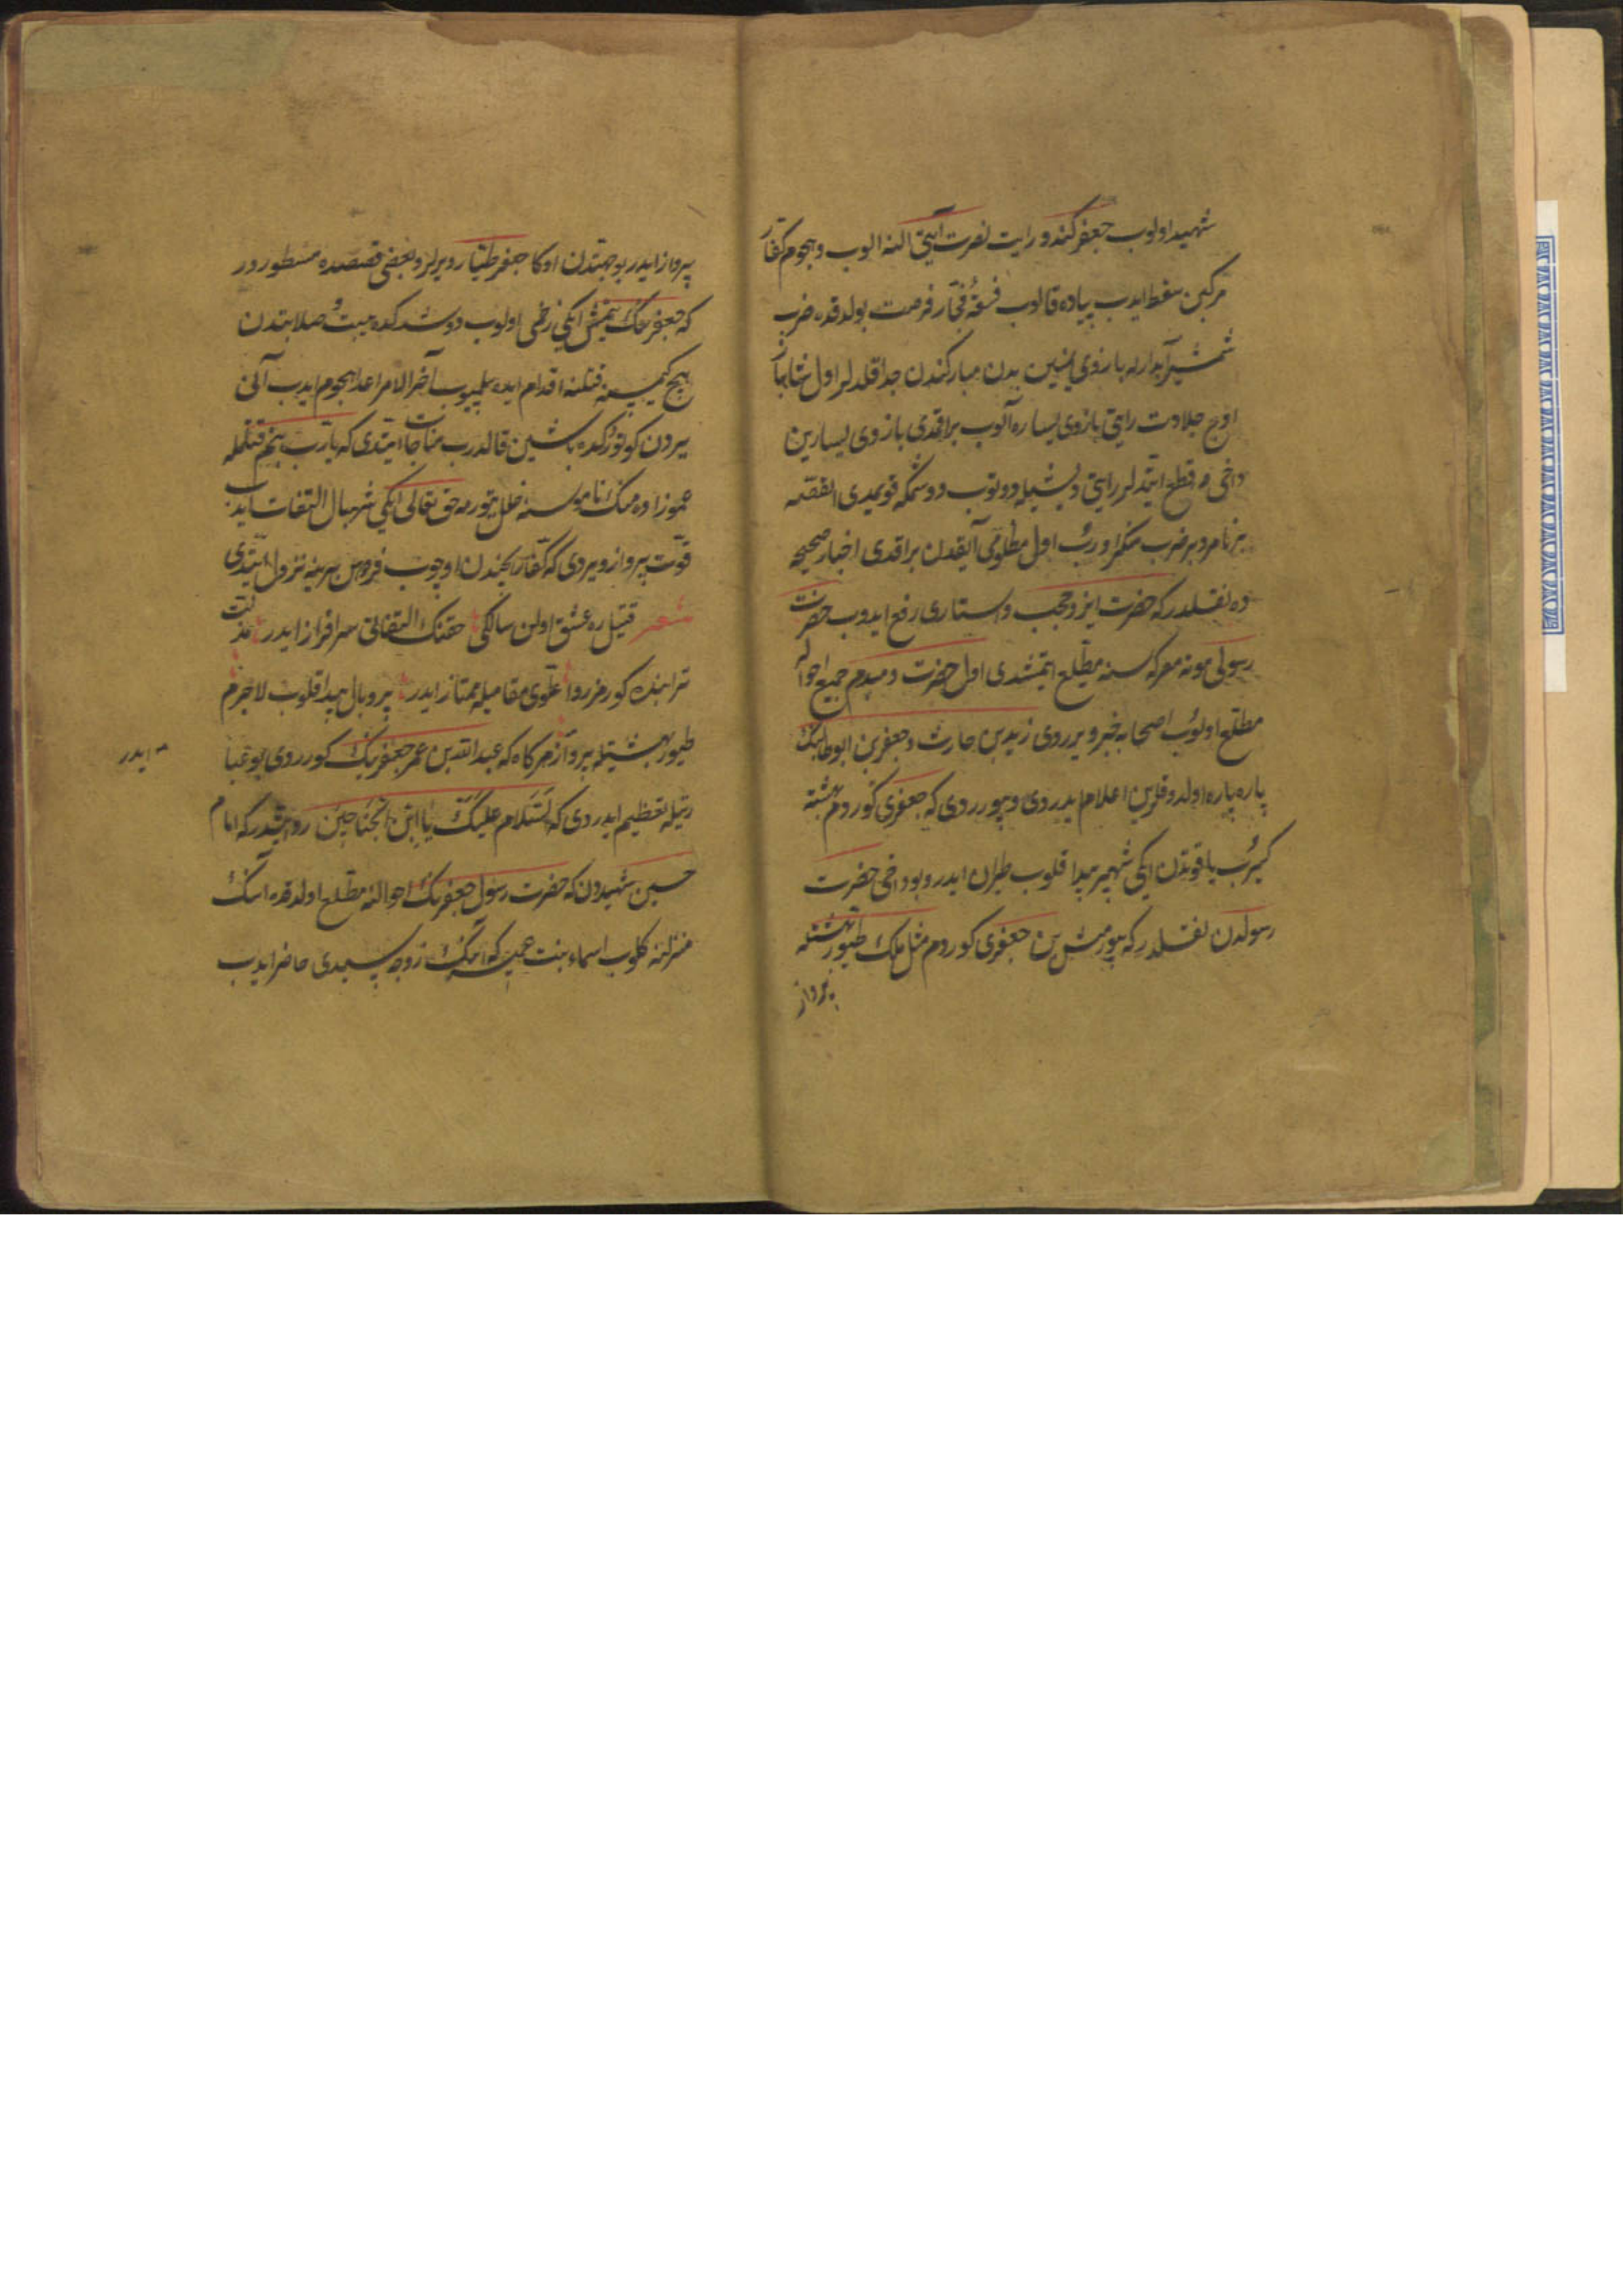 شهید اولوب جعفر کندو رایت نصرت آیتی النه الوب و هجوم کفار
مرکبن سقط ایدب پیاده قالوب فسقهٔ فجار فرصت بولدقده ضرب
شمشیر آبدارله بازوی یمینین بدن مبارکندن جدا قلدلر اول شاهباز
اوج جلادت رایتی بازوی یساره آلوب براقمدی بازوی یسارین
داخی قطع ایتدلر رایتی دیشیله دوتوب دوشمکه قویمدی القصه
بر نامرد بر ضرب منکر اورب اول مظلومی آیقدن براقدی اخبار صحیحه
ده نقلدر که حضرت ایزد حجب و استاری رفع ایدوب حضرت
رسولی موته معرکه سنه مطلع ایتمشدی اول حضرت دمبدم جمیع احواله
مطلع اولوب اصحابه خبر ویرردی زید بن حارث و جعفر بن ابوطالبنک
پاره پاره اولدوقلرین اعلام ایدردی و بیورردی که جعفری کوردم بهشته
کیرب یاقوتدن ایکی شهپر پیدا قلوب طیران ایدر و بو داخی حضرت
رسولدن نقلدر که بیورمش بن جعفری کوردم مثل ملک طیور بهشتله
پرواز
پرواز ایدر بو جهتدن اوکا جعفر طیار دیرلر و بعضی قصصده مسطوردر
که جعفرنک یتمش ایکی زخمی اولوب دوشدکده هیبت و صلابتدن
هیچ کیمسنه قتلنه اقدام ایده بلمیوب آخر الامر اعدا هجوم ایدب آنی
یردن کوتوردکده باشین قالدرب مناجات ایتدی که یارب بنم قتلمله
عموزاده مک ناموسنه خلل یتورمه حق تعالی ایکی شهبال التفات ایدب
قوت پرواز ویردی که کفار ایچندن اوچوب فردوس برینه نزول ایتدی
شعر قتیل ره عشق اولن سالکی حقنک التفاتی سرافراز ایدر مذلت
ترابنده کورمز روا علوی مقامیله ممتاز ایدر پر و بال پیدا قلوب لاجرم
طیور بهشتیله پرواز ایدر هر کاه که عبدالله بن عمر جعفر بنک کورردی بو عبا
رتیله تعظیم ایدردی که السلام علیک یا ابن الجناحین روایتدر که امام
حسین شهیددن که حضرت رسول جعفرنک احوالنه مطلع اولدقده انک
منزلنه کلوب اسماء بنت عمیس که انک زوجه سیدی حاضر ایدب